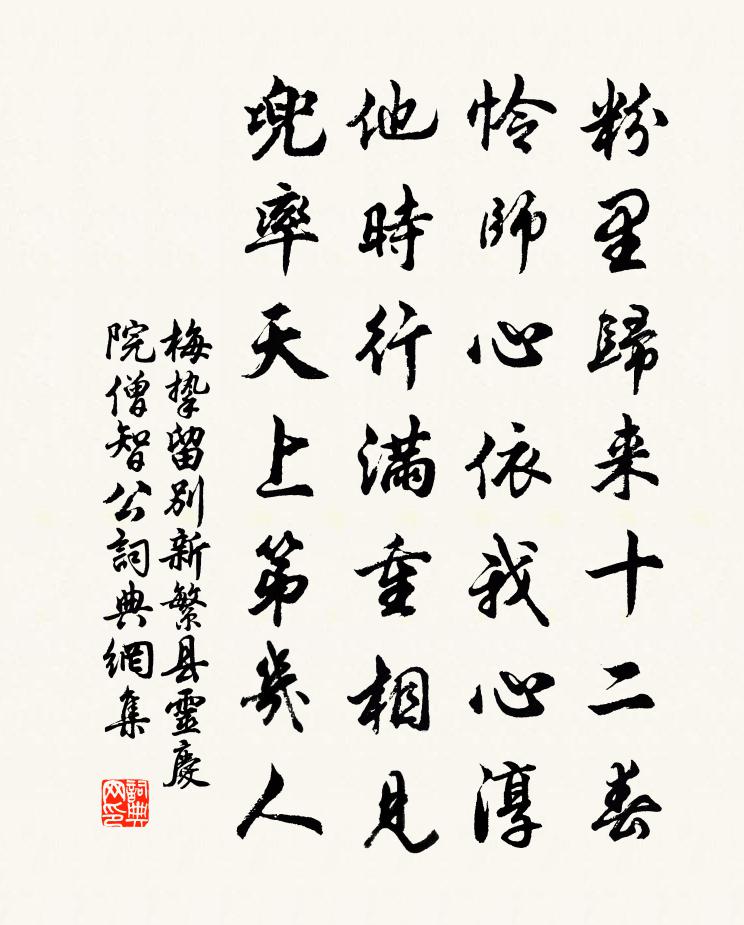 粉里歸来十二春
怜師心依我心淳
他時行满重相見
兜率天上第幾人
梅挚留別新繁县靈慶
院僧智公詞典網集
詞典网印